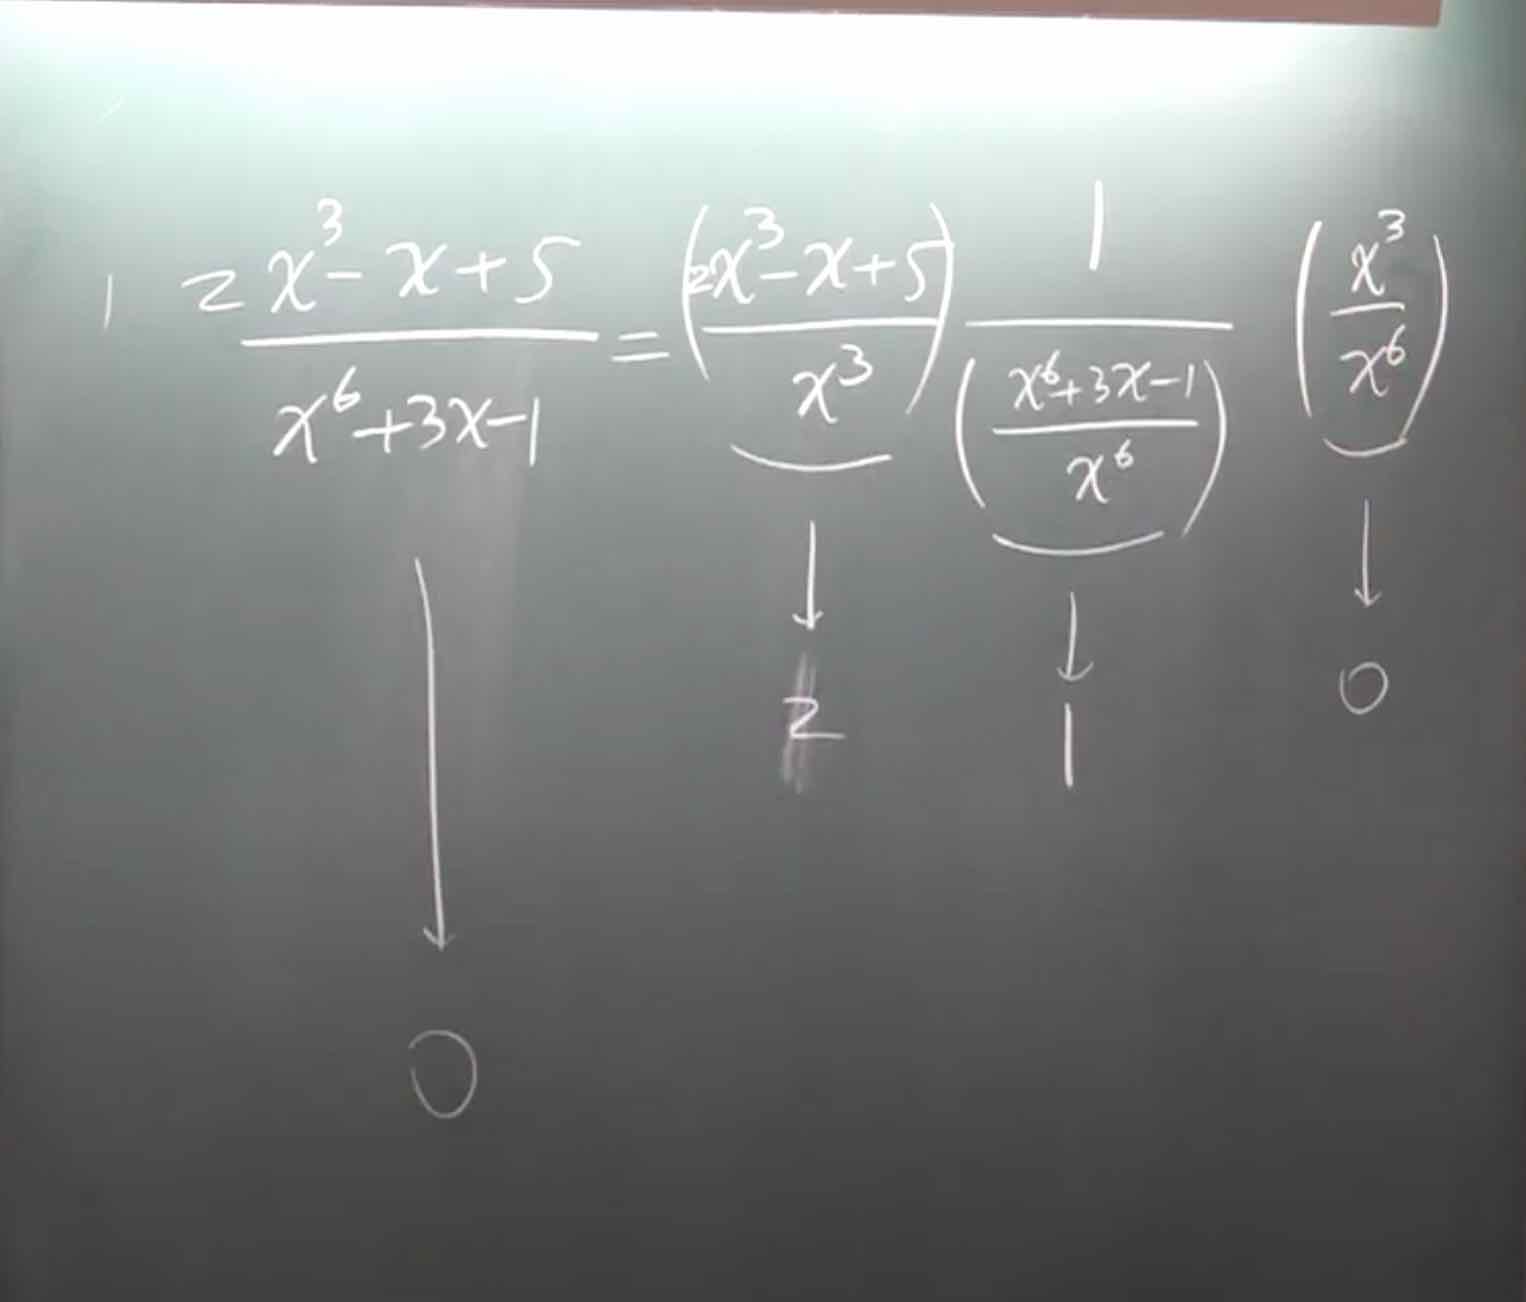 2x³-x+5 / x⁶+3x-1 = (2x³-x+5 / x³) 1 / (x⁶+3x-1 / x⁶) (x³ / x⁶)
↓ ↓ ↓ ↓
0 2 1 0